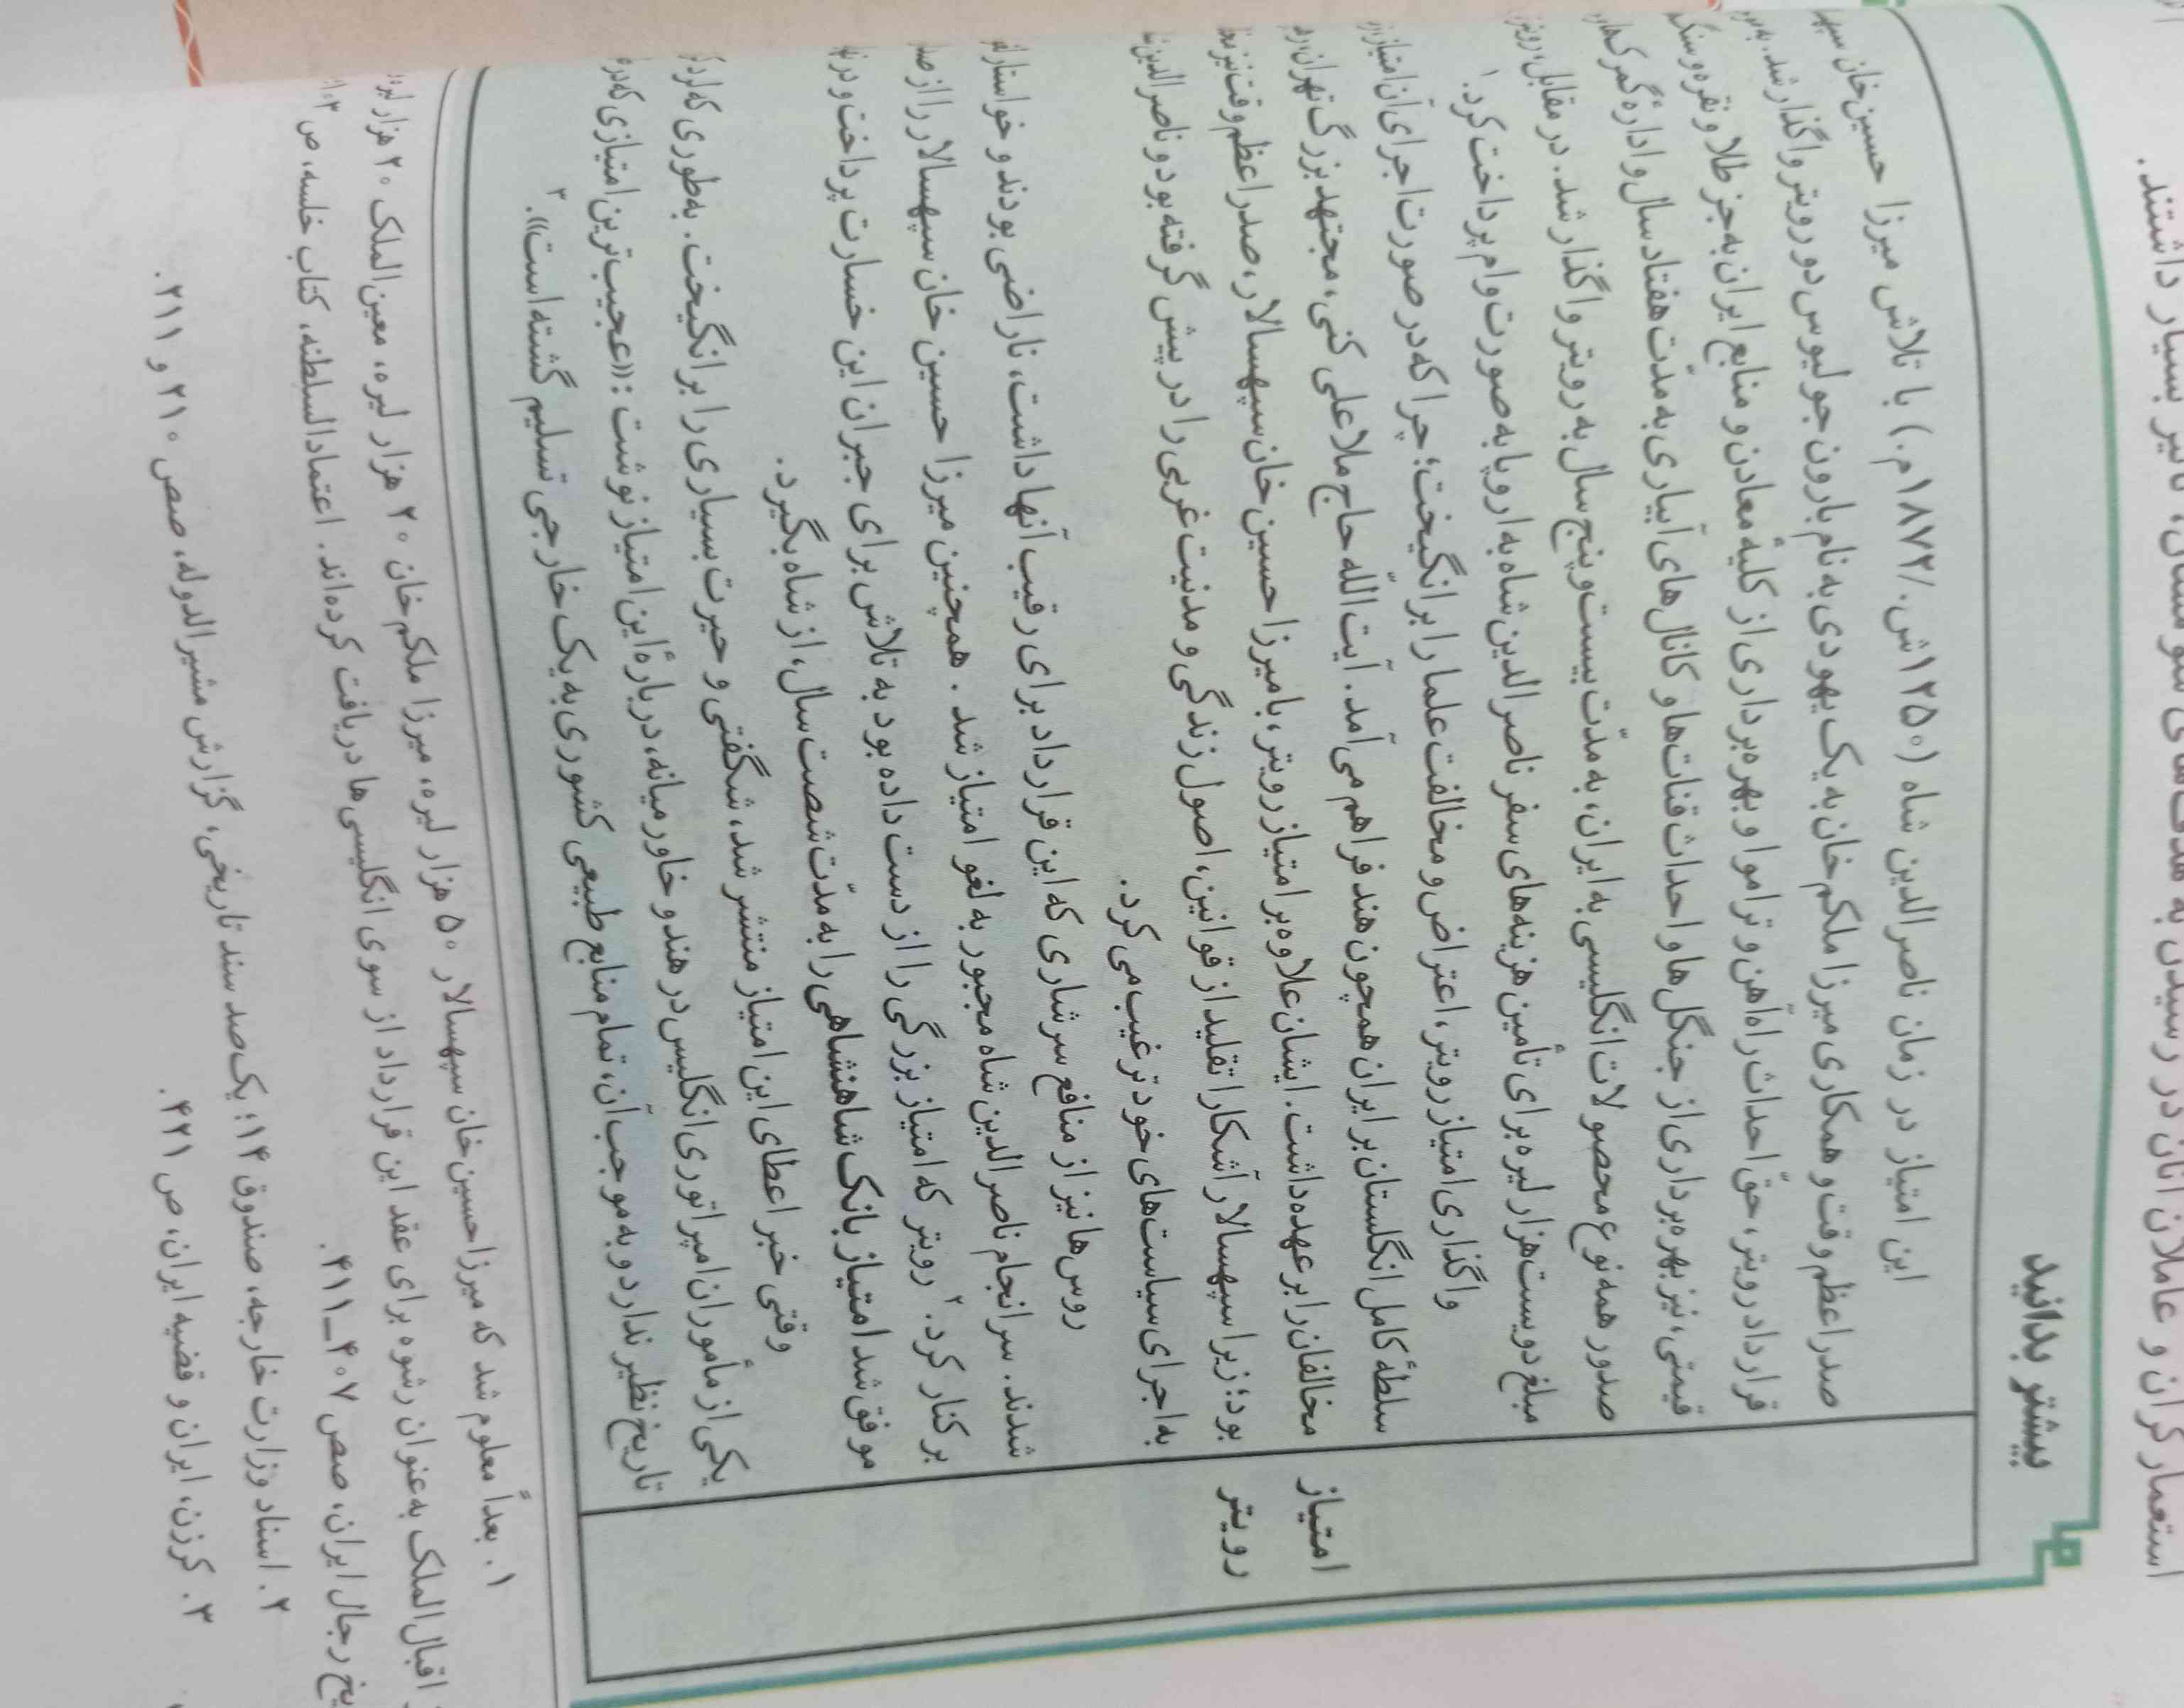 استعمارگران و عاملان آنان در رسیدن به
بسیار داشتند.
بیشتر بدانید
امتیاز
رویتر
این امتیاز در زمان ناصرالدین شاه (۱۲۵۰ش./۱۸۷۲م.) با تلاش میرزا حسین‌خان
صدراعظم وقت و همکاری میرزا ملکم خان به یک یهودی به نام بارون جولیوس دو رویتر واگذار شد.
قرارداد رویتر، حقّ احداث راه‌آهن و تراموا و بهره‌برداری از کلیهٔ معادن و منابع ایران به جز طلا و نقره و
قیمتی، نیز بهره‌برداری از جنگل‌ها و احداث قنات‌ها و کانال‌های آبیاری به مدّت هفتاد سال و ادارهٔ گمرک
صدور همه نوع محصولات انگلیسی به ایران، به مدّت بیست و پنج سال به رویتر واگذار شد. در مقابل، رویتر
مبلغ دویست هزار لیره برای تأمین هزینه‌های سفر ناصرالدین شاه به اروپا به صورت وام پرداخت کرد.۱
واگذاری امتیاز رویتر، اعتراض و مخالفت علما را برانگیخت؛ چرا که در صورت اجرای آن امتیاز
سلطهٔ کامل انگلستان بر ایران همچون هند فراهم می‌آمد. آیت‌اللّه حاج ملا علی کنی، مجتهد بزرگ تهران
مخالفان را بر عهده داشت. ایشان علاوه بر امتیاز رویتر، با میرزا حسین خان سپهسالار، صدراعظم وقت نیز
بود؛ زیرا سپهسالار آشکارا تقلید از قوانین، اصول زندگی و مدنیت غربی را در پیش گرفته بود و ناصرالدین
به اجرای سیاست‌های خود ترغیب می‌کرد.
روس‌ها نیز از منافع سرشاری که این قرارداد برای رقیب آنها داشت، ناراضی بودند و خواستار
شدند. سرانجام ناصرالدین شاه مجبور به لغو امتیاز شد. همچنین میرزا حسین خان سپهسالار را از
برکنار کرد.۲ رویتر که امتیاز بزرگی را از دست داده بود به تلاش برای جبران این خسارت پرداخت و در
موفق شد امتیاز بانک شاهنشاهی را به مدّت شصت سال، از شاه بگیرد.
وقتی خبر اعطای این امتیاز منتشر شد، شگفتی و حیرت بسیاری را برانگیخت. به‌طوری که لرد
یکی از مأموران امپراتوری انگلیس در هند و خاورمیانه، دربارهٔ این امتیاز نوشت: «عجیب‌ترین امتیازی که در
تاریخ نظیر ندارد و به موجب آن، تمام منابع طبیعی کشوری به یک خارجی تسلیم گشته است».۳
۱. بعداً معلوم شد که میرزا حسین‌خان سپهسالار ۵۰ هزار لیره، میرزا ملکم‌خان ۲۰ هزار لیره، معین‌الملک ۲۰ هزار لیره
اقبال‌الملک به‌عنوان رشوه برای عقد این قرارداد از سوی انگلیسی‌ها دریافت کرده‌اند. اعتمادالسلطنه، کتاب خلسه، ص
رجال ایران، صص ۴۰۷_۴۱۱.
۲. اسناد وزارت خارجه، صندوق ۱۴؛ یک‌صد سند تاریخی، گزارش مشیرالدوله، صص ۲۱۰ و ۲۱۱.
۳. کرزن، ایران و قضیه ایران، ص ۴۲۱.